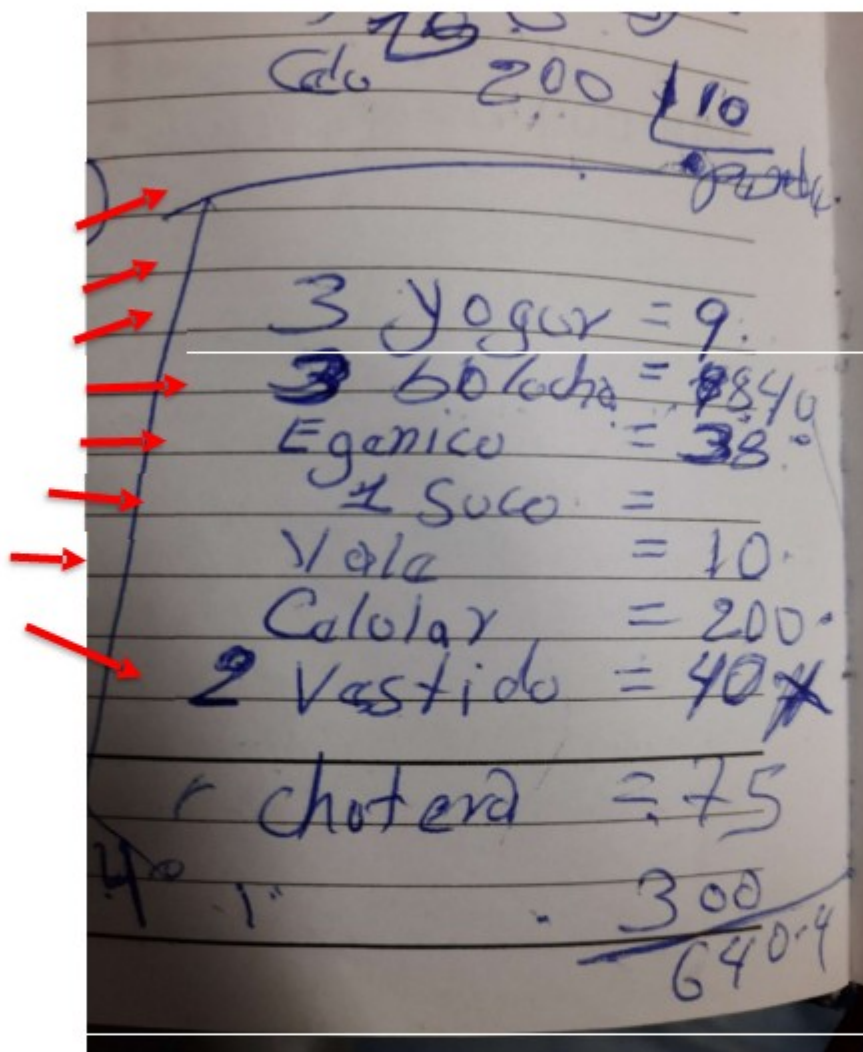 Calo 200 110
3 yogur = 9.
3 bolacha = 840
Eganico = 38.
1 Suco =
Vale = 10.
Calolar = 200.
2 Vastido = 40
chotera = 75
300
640.4